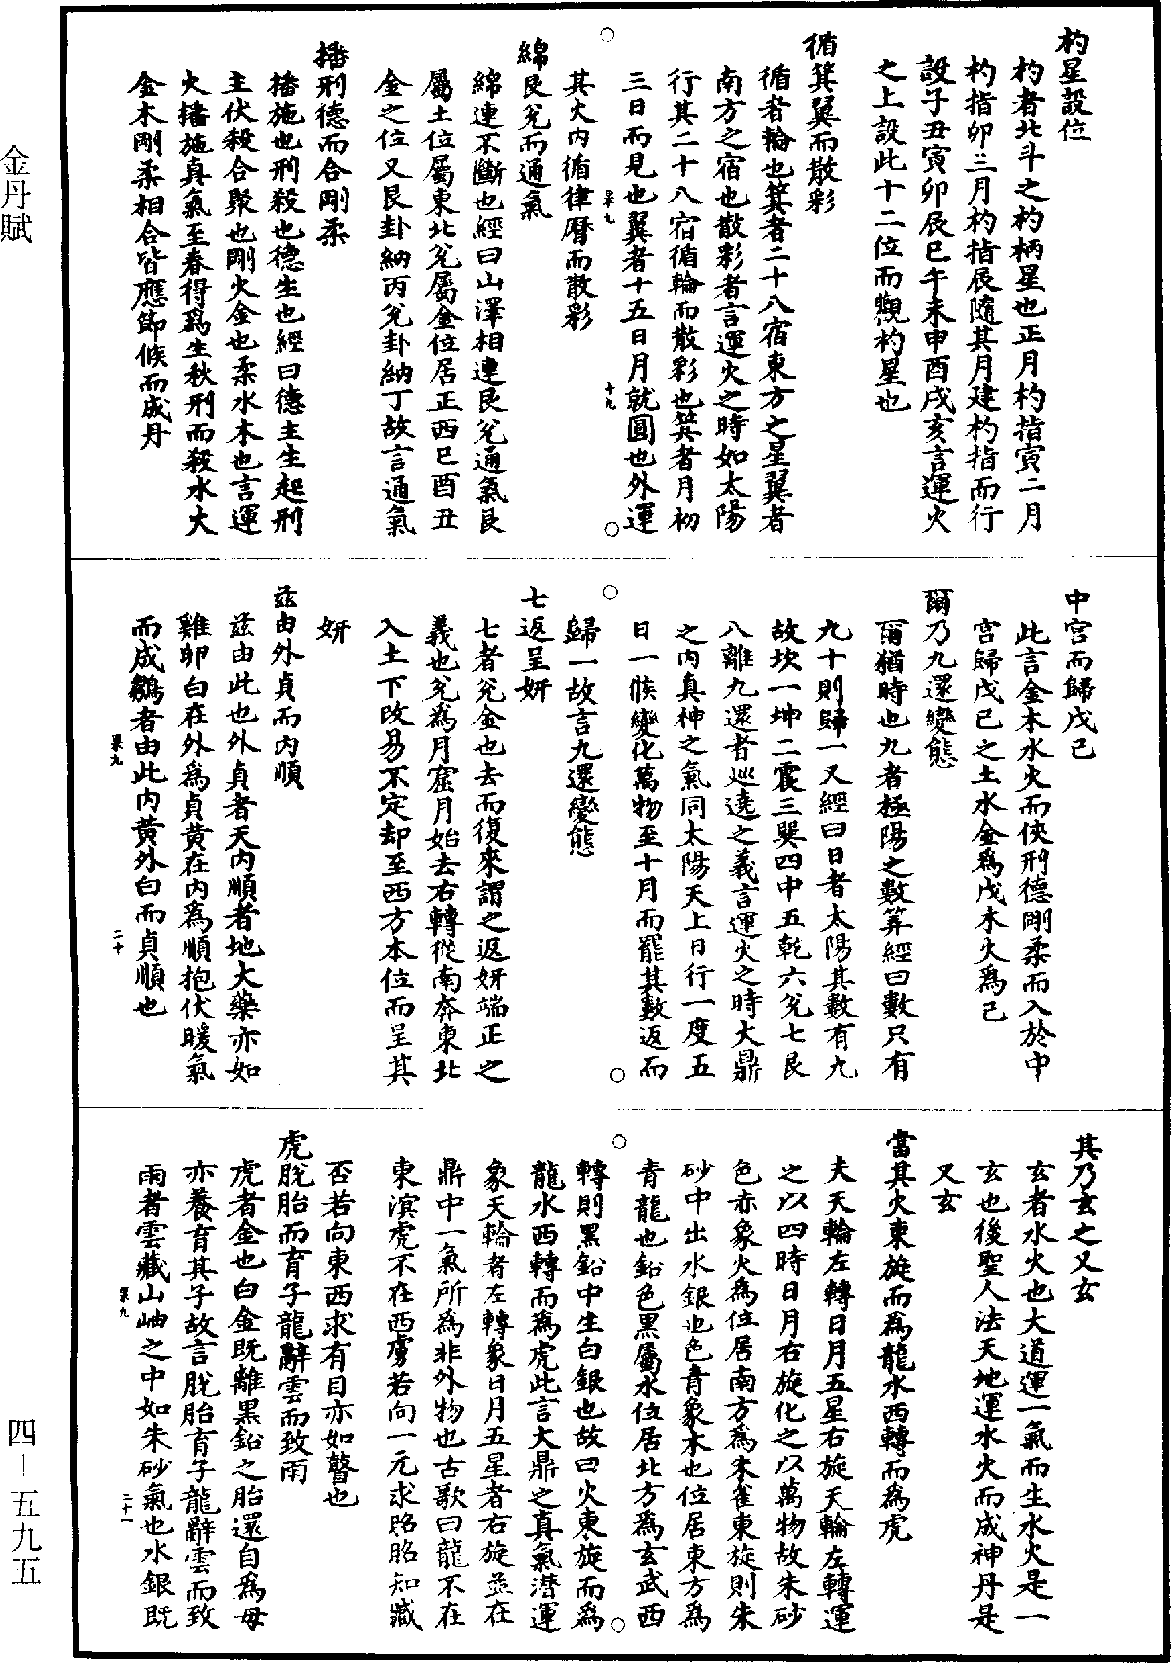 杓星設位
杓者北斗之杓柄星也正月杓指寅二月
杓指卯三月杓指辰隨其月建杓指而行
設子丑寅卯辰巳午未申酉戌亥言運火
之上設此十二位而觀杓星也
循箕翼而散彩
循者輪也箕者二十八宿東方之星翼者
南方之宿也散彩者言運火之時如太陽
行其二十八宿循輪而散彩也箕者月初
三日而見也翼者十五日月就圓也外運
果九
十九
其火内循律曆而散彩
綿艮兌而通氣
綿連不斷也經曰山澤相連艮兌通氣艮
屬土位屬東北兌屬金位居正西巳酉丑
金之位又艮卦納丙兌卦納丁故言通氣
播刑德而合剛柔
播施也刑殺也德生也經曰德主生起刑
主伏殺合聚也剛火金也柔水木也言運
火播施真氣至春得爲生秋刑而殺水大
金木剛柔相合皆應節候而成丹
中宫而歸戊己
此言金木水火而俠刑德剛柔而入於中
宫歸戊己之土水金爲戊木火爲己
爾乃九還變態
爾猶時也九者極陽之數筭經曰數只有
九十則歸一又經曰日者太陽其數有九
故坎一坤二震三巽四中五乾六兌七艮
八離九還者巡遶之義言運火之時大鼎
之内真神之氣同太陽天上日行一度五
日一候變化萬物至十月而罷其數返而
歸一故言九還變態
七返呈妍
七者兌金也去而復來謂之返妍端正之
義也兌為月窟月始去右轉從南奔東北
入土下改易不定却至西方本位而呈其
妍
茲由外貞而内順
茲由此也外貞者天内順者地大藥亦如
雞卵白在外為貞黄在内為順抱伏暖氣
而成鶵者由此内黄外白而貞順也
果九
二十
其乃玄之又玄
玄者水火也大道運一氣而生水火是一
玄也後聖人法天地運水火而成神丹是
又玄
當其火東旋而為龍水西轉而為虎
夫天輪左轉日月五星右旋天輪左轉運
之以四時日月右旋化之以萬物故朱砂
色赤象火為位居南方為朱雀東旋則朱
砂中出水銀也色青象木也位居東方為
青龍也鉛色黒屬水位居北方為玄武西
轉則黒鉛中生白銀也故曰火東旋而為
龍水西轉而為虎此言大鼎之真氣潜運
象天輪者左轉象日月五星者右旋並在
鼎中一氣所為非外物也古歌曰龍不在
東濵虎不在西虜若向一元求昭昭知藏
否若向東西求有目亦如瞽也
虎脫胎而育子龍辭雲而致雨
虎者金也白金既離黒鉛之胎還自為母
亦養育其子故言脫胎育子龍辭雲而致
雨者雲藏山岫之中如朱砂氣也水銀既
果九
二十一
金丹賦
四－五九五